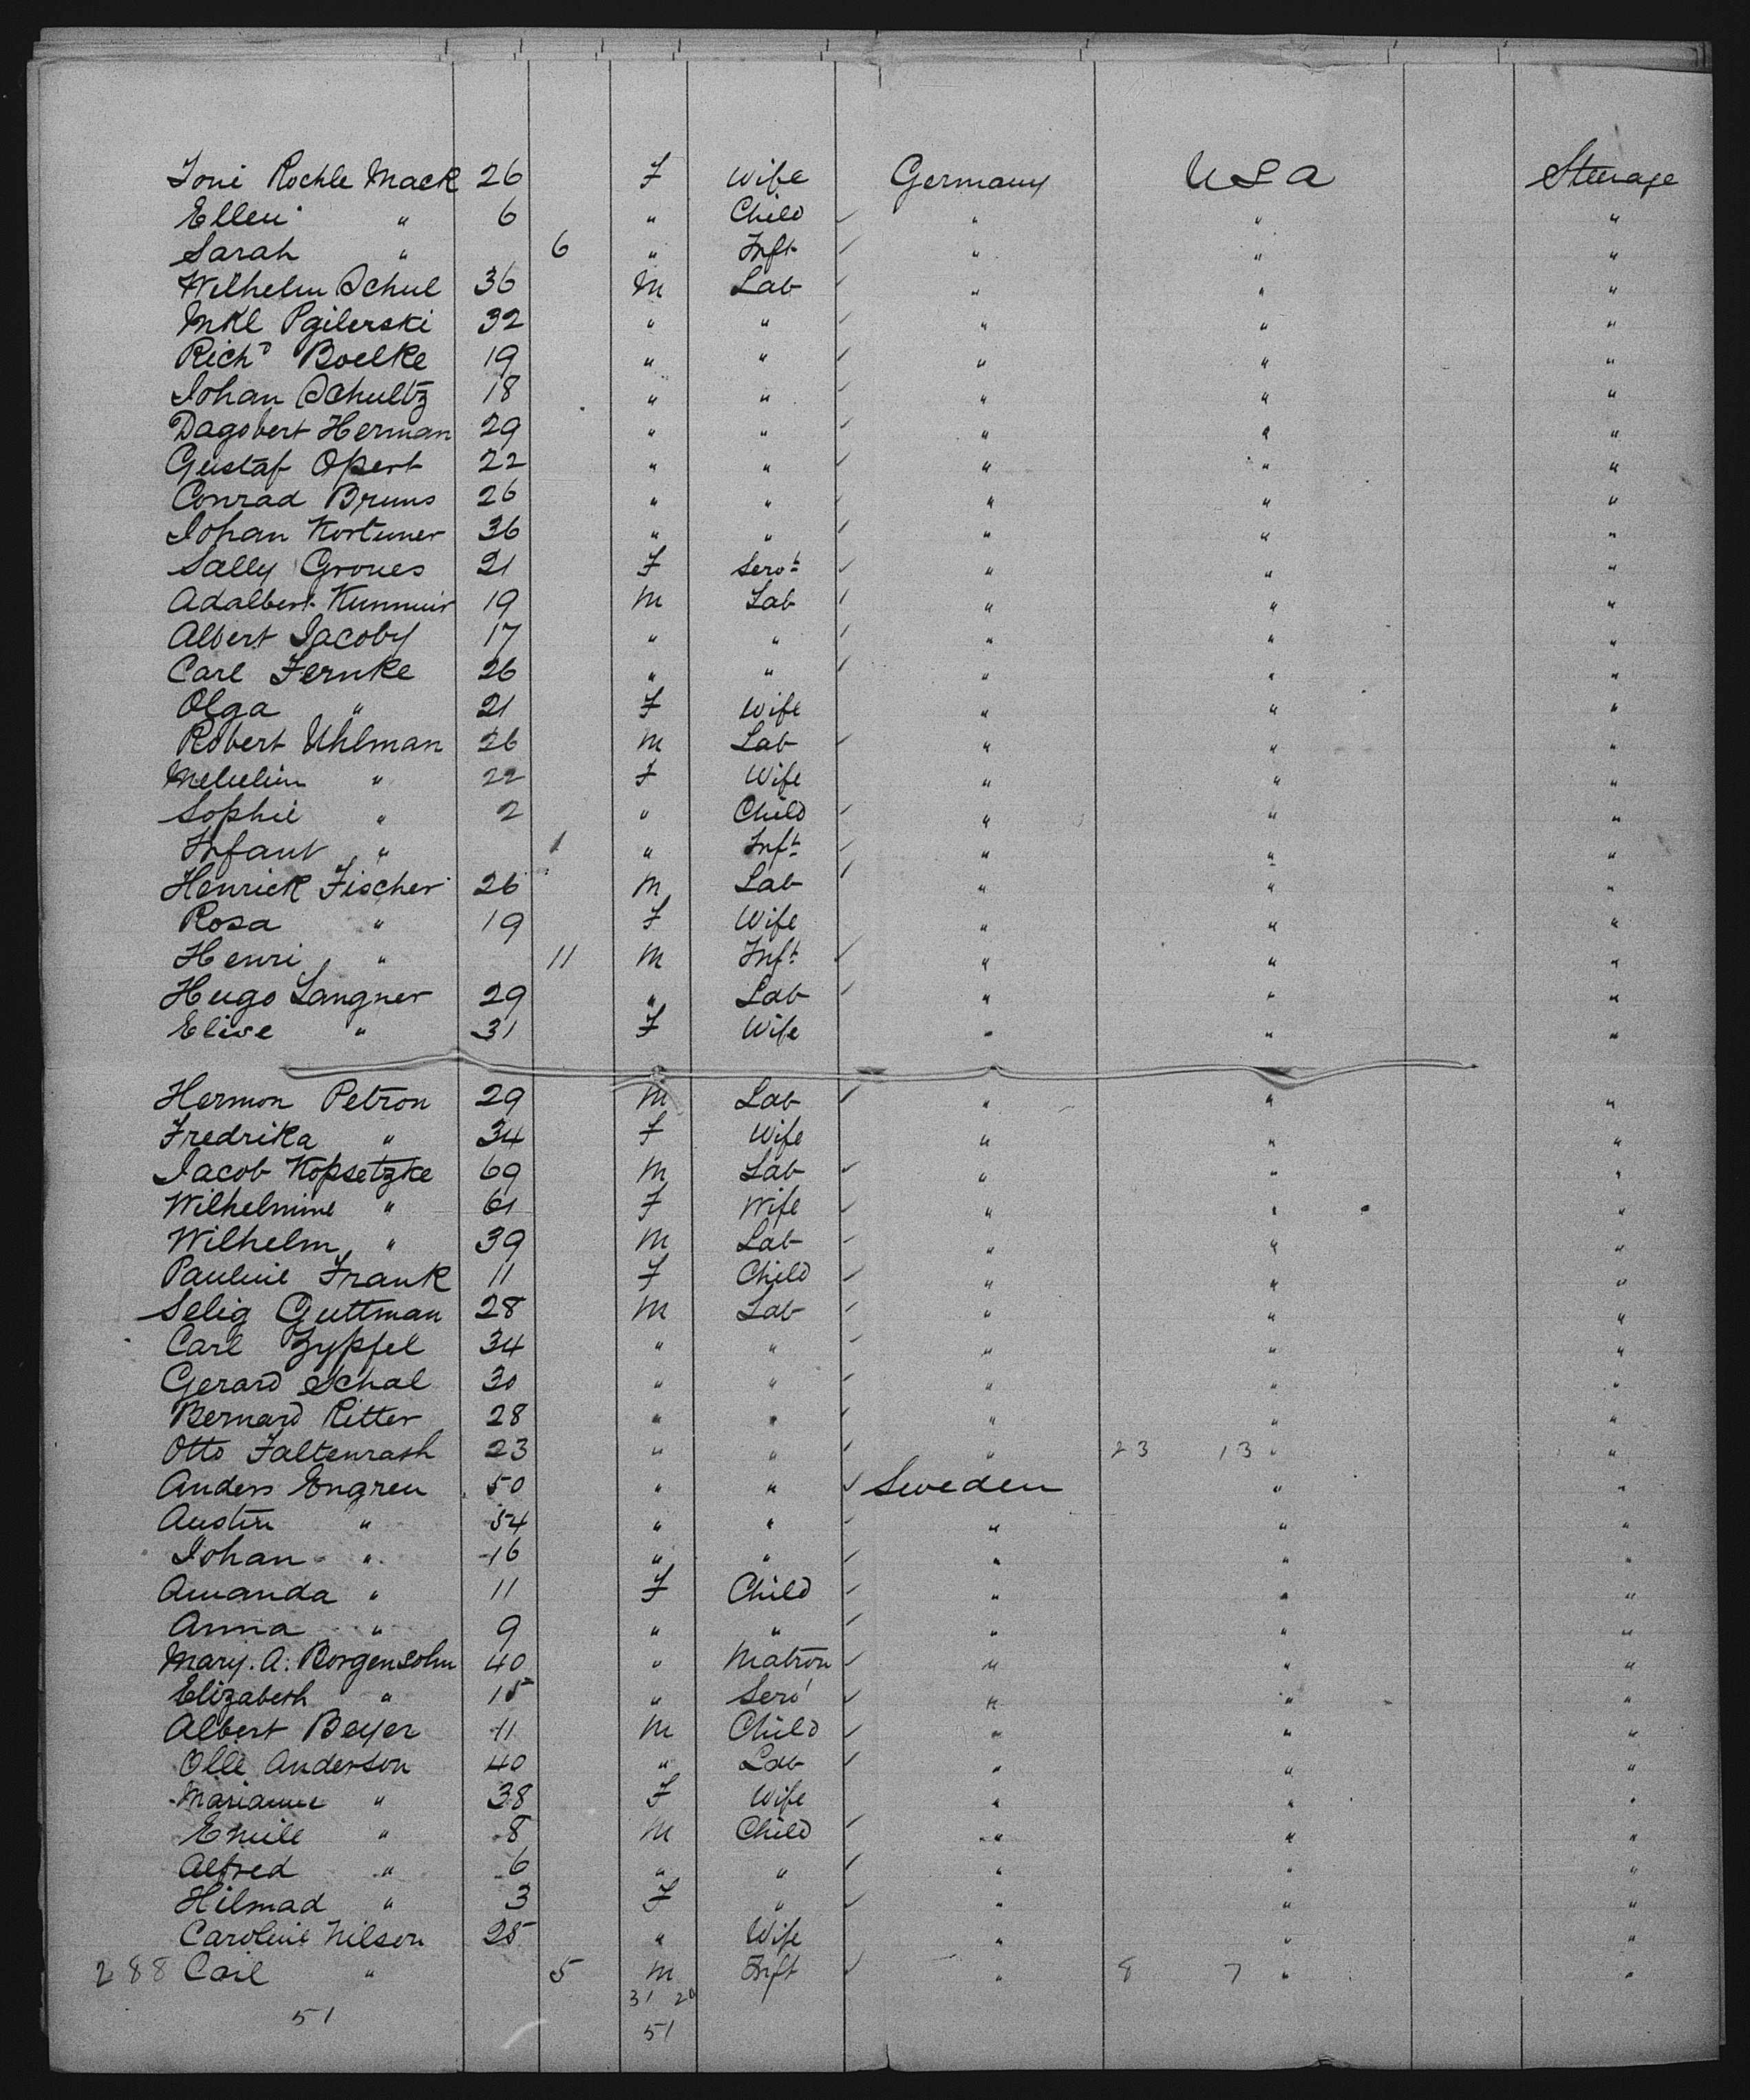 Toni Rochle Mack 26 F Wife Germany USA Steerage
Ellen " 6 " Child " " "
Sarah " 6 " Inft " " "
Wilhelm Schul 36 M Lab " " "
Mkl Pgilerski 32 " " " " "
Richd Boelke 19 " " " " "
Johan Schultz 18 " " " " "
Dagobert Herman 29 " " " " "
Gustaf Opert 22 " " " " "
Conrad Bruns 26 " " " " "
Johan Kortumer 36 " " " " "
Sally Groues 21 F Servt " " "
Adalbert 19 M Lab " " "
Albert Jacoby 17 " " " " "
Carl Fernke 26 " " " " "
Olga " 21 F Wife " " "
Robert Uhlman 26 M Lab " " "
" 22 F Wife " " "
Sophie " 2 " Child " " "
Infant " 1 " Inft " " "
Henrick Fischer 26 M Lab " " "
Rosa " 19 F Wife " " "
Henri " 11 M Inft " " "
Hugo Langner 29 " Lab " " "
Elise " 31 F Wife " " "
Hermon Petron 29 M Lab " " "
Fredrika " 34 F Wife " " "
Jacob Kopsetzke 69 M Lab " " "
Wilhelmine " 61 F Wife " " "
Wilhelm " 39 M Lab " " "
Pauline Frank 11 F Child " " "
Selig Guttman 28 M Lab " " "
Carl Zypfel 34 " " " " "
Gerard Schal 30 " " " " "
Bernard Ritter 28 " " " " "
Otto Faltenrash 23 " " " 23 13 " "
Anders Engren 50 " " Sweden " "
Austin " 54 " " " " "
Johan " 16 " " " " "
Amanda " 11 F Child " " "
Anna " 9 " " " " "
Mary. A. Borgensohn 40 " Matron " " "
Elizabeth " 15 " Serv " " "
Albert Beyer 11 M Child " " "
Olle Anderson 40 " Lab " " "
Marianne " 38 F Wife " " "
Emile " 8 M Child " " "
Alfred " 6 " " " " "
Hilmad " 3 F " " " "
Caroline Nilson 25 " Wife " " "
288 Carl " 5 M Inft " 8 7 " "
31 20
51 51